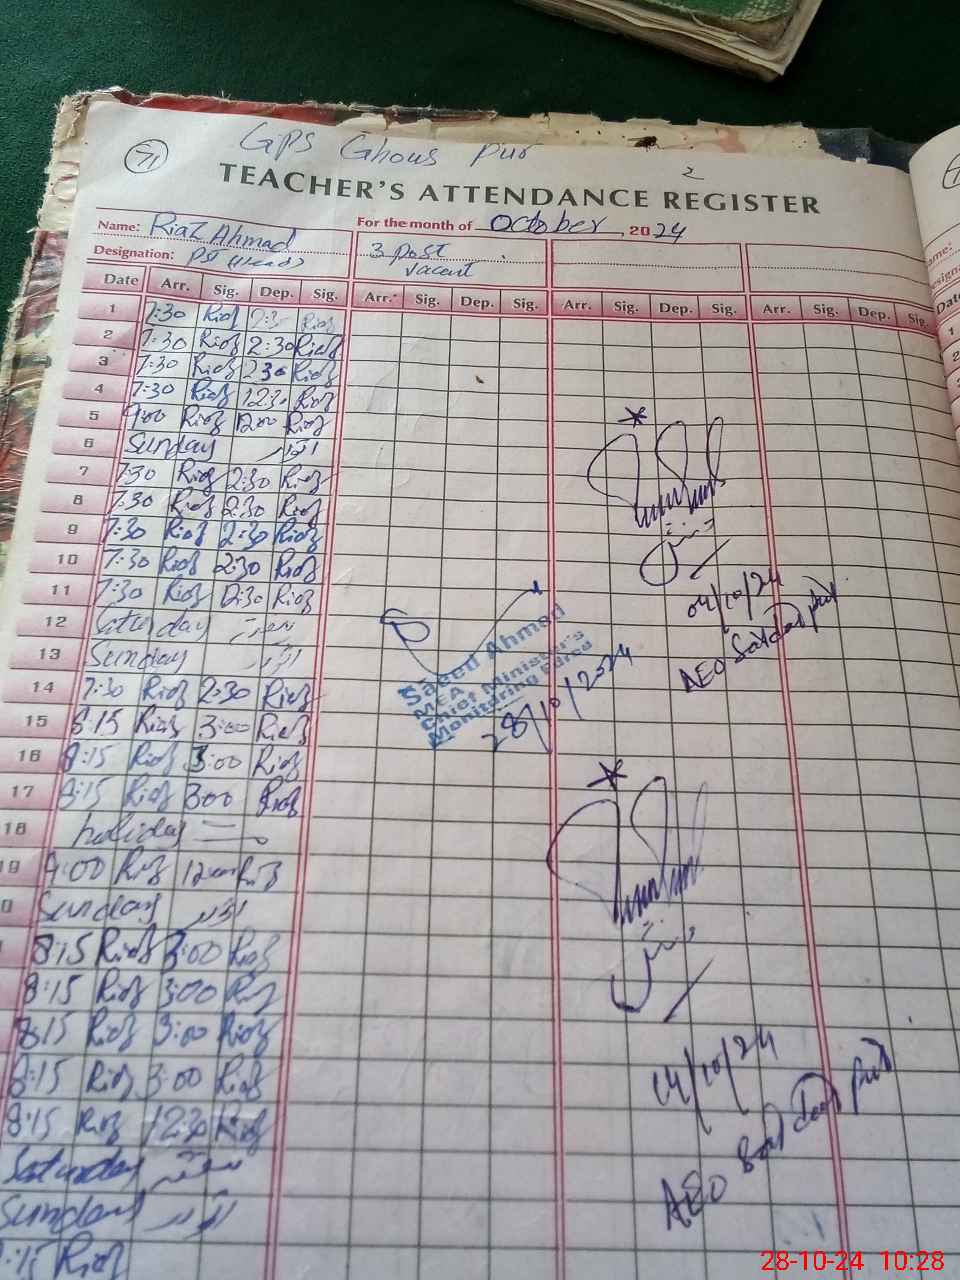 71
GPS Ghous pur
2
TEACHER'S ATTENDANCE REGISTER
Name: Riaz Ahmad
For the month of October, 2024
Designation: PST (Head)
3 post
vacant
Date Arr. Sig. Dep. Sig. Arr. Sig. Dep. Sig. Arr. Sig. Dep. Sig. Arr. Sig. Dep. Sig.
1 7:30 Riaz 2:30 Riaz
2 7:30 Riaz 2:30 Riaz
3 7:30 Riaz 2:30 Riaz
4 7:30 Riaz 12:30 Riaz
5 9:00 Riaz 12:00 Riaz
6 Sunday اتوار
7 7:30 Riaz 2:30 Riaz
8 7:30 Riaz 2:30 Riaz
9 7:30 Riaz 2:30 Riaz
10 7:30 Riaz 2:30 Riaz
11 7:30 Riaz 12:30 Riaz
12 Saturday ہفتہ
13 Sunday اتوار
14 7:30 Riaz 2:30 Riaz
15 8:15 Riaz 3:00 Riaz
16 8:15 Riaz 3:00 Riaz
17 8:15 Riaz 300 Riaz
18 holiday
19 9:00 Riaz 12:00 Riaz
0 Sunday اتوار
8:15 Riaz 3:00 Riaz
8:15 Riaz 3:00 Riaz
8:15 Riaz 3:00 Riaz
8:15 Riaz 3:00 Riaz
8:15 Riaz 12:30 Riaz
Saturday ہفتہ
Sunday اتوار
:15 Riaz
04/10/24
AEO Saidan pur
Saeed Ahmad
MEA
Chief Minister's
Monitoring Force
28/10/2024
14/10/24
AEO
28-10-24 10:28